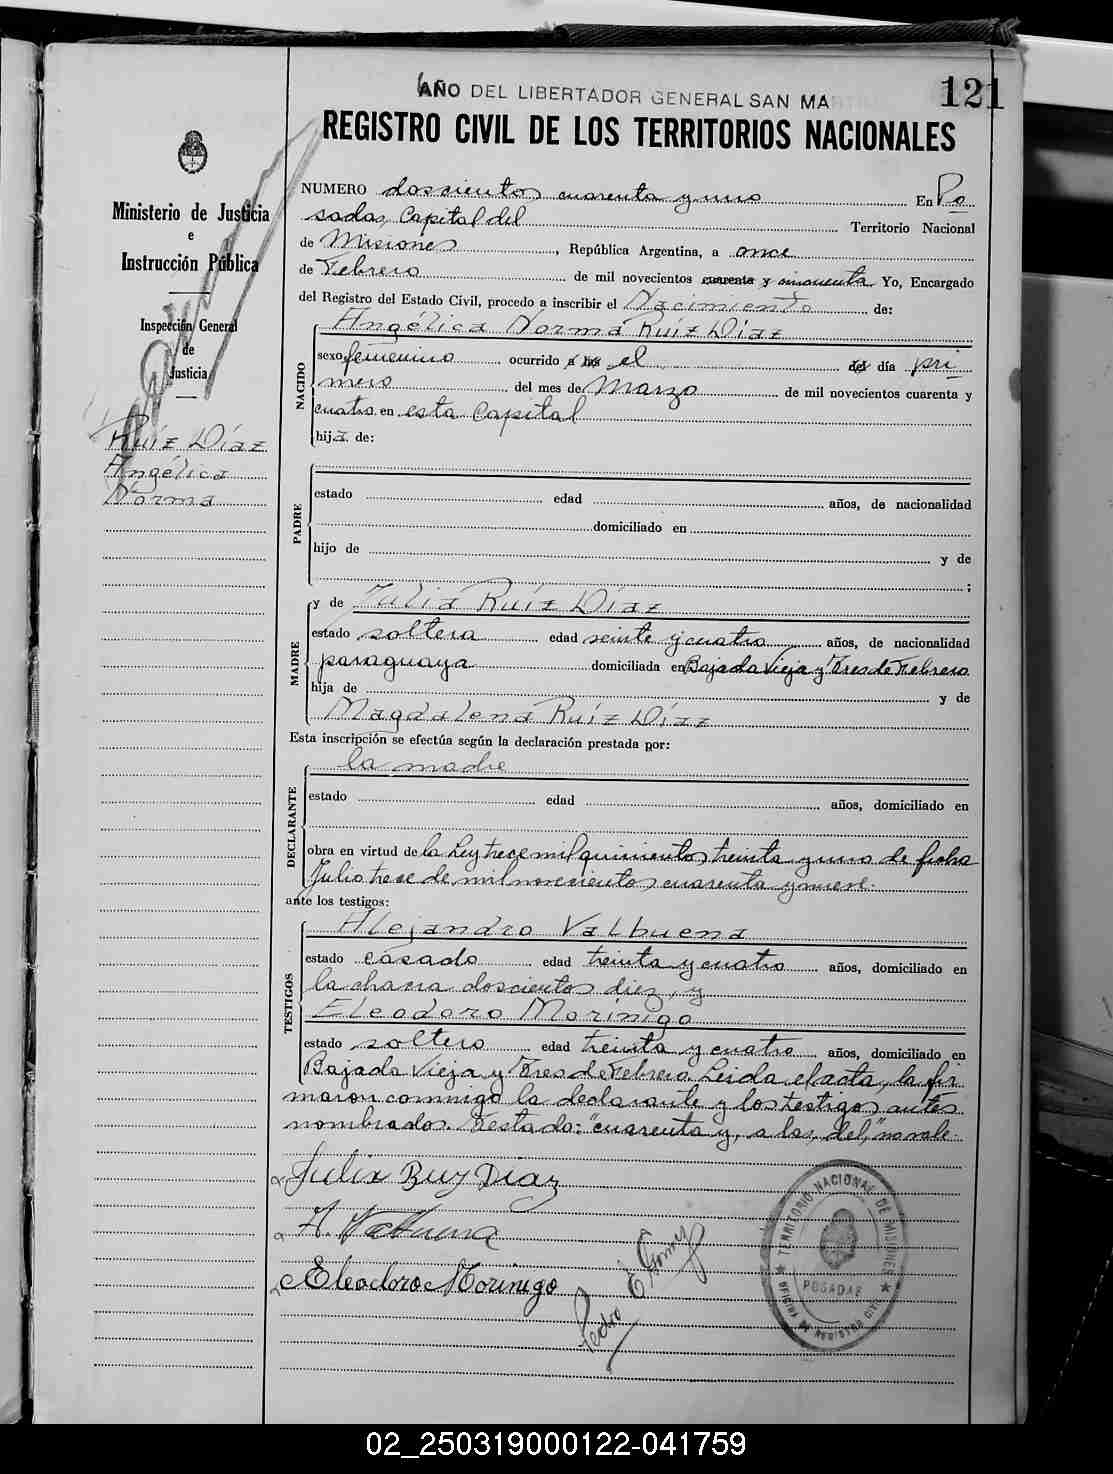 121
AÑO DEL LIBERTADOR GENERAL SAN MA
REGISTRO CIVIL DE LOS TERRITORIOS NACIONALES
Ministerio de Justicia
e
Instrucción Pública
Inspección General
de
Justicia
Ruíz Díaz
Angélica
Norma
NUMERO doscientos cuarenta y uno En Po
sadas, Capital del Territorio Nacional
de Misiones, República Argentina, a once
de Febrero de mil novecientos cuarenta y cincuenta Yo, Encargado
del Registro del Estado Civil, procedo a inscribir el Nacimiento de:
NACIDO
Angélica Norma Ruíz Díaz
sexo femenino ocurrido a las el del día pri
mero del mes de Marzo de mil novecientos cuarenta y
cuatro en esta Capital
hija de:
PADRE
estado edad años, de nacionalidad
domiciliado en
hijo de y de
;
MADRE
y de Julia Ruíz Díaz
estado soltera edad veinte y cuatro años, de nacionalidad
paraguaya domiciliada en Bajada Vieja y Tres de Febrero
hija de y de
Magdalena Ruíz Díaz
Esta inscripción se efectúa según la declaración prestada por:
DECLARANTE
la madre
estado edad años, domiciliado en
obra en virtud de la Ley trece mil quinientos treinta y uno de fecha
Julio trece de mil novecientos cuarenta y nueve.
ante los testigos:
TESTIGOS
Alejandro Valbuena
estado casado edad treinta y cuatro años, domiciliado en
la chacra doscientos diez, y
Eleodoro Morínigo
estado soltero edad treinta y cuatro años, domiciliado en
Bajada Vieja y Tres de Febrero. Leida el acta, la fir
maron conmigo la declarante y los testigos antes
nombrados. Testado: "cuarenta y, a las, del," no vale.
Julia Ruiz Diaz
A. Valbuena
Eleodoro Morinigo
Pedro E. Gomez
TERRITORIO NACIONAL DE MISIONES
POSADAS
OFICINA DE REGISTRO CIVIL
02_250319000122-041759